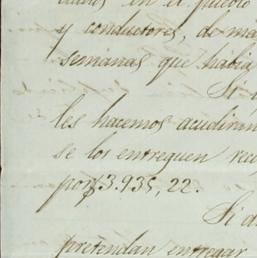 en el pueblo
y conductores, de
semanas que había
Si
les hacemos acudirán
se los entreguen
por $3.935,22.
Si
pretendan entregar